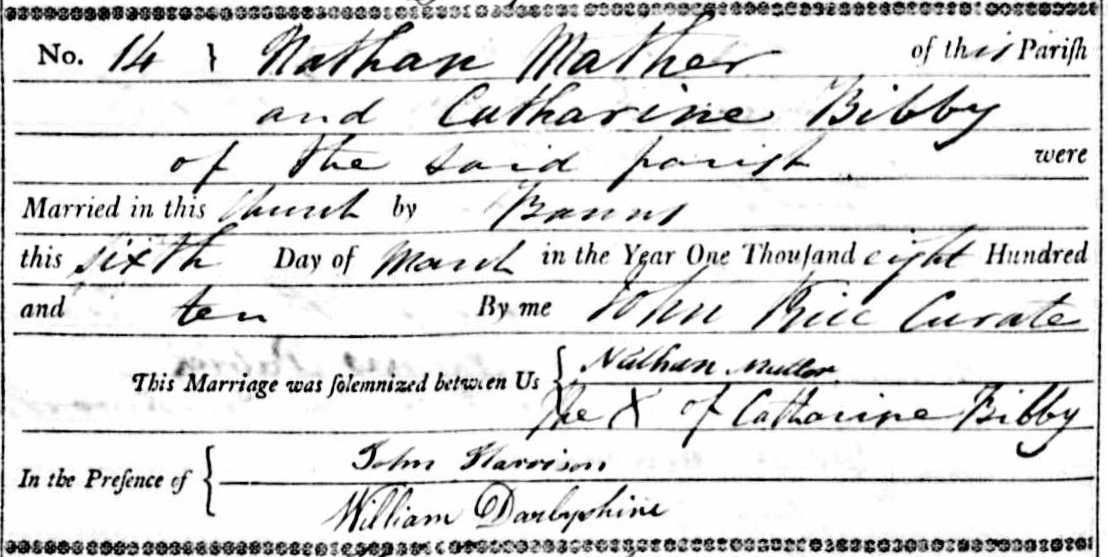 No. 14 } Nathan Mather of this Pariſh
and Catharine Bibby
of the said parish were
Married in this Church by Banns
this sixth Day of March in the Year One Thouſand eight Hundred
and ten By me John Rice Curate
This Marriage was ſolemnized between Us { Nathan Muller
the X of Catharine Bibby
In the Preſence of { John Harrison
William Darbyshire